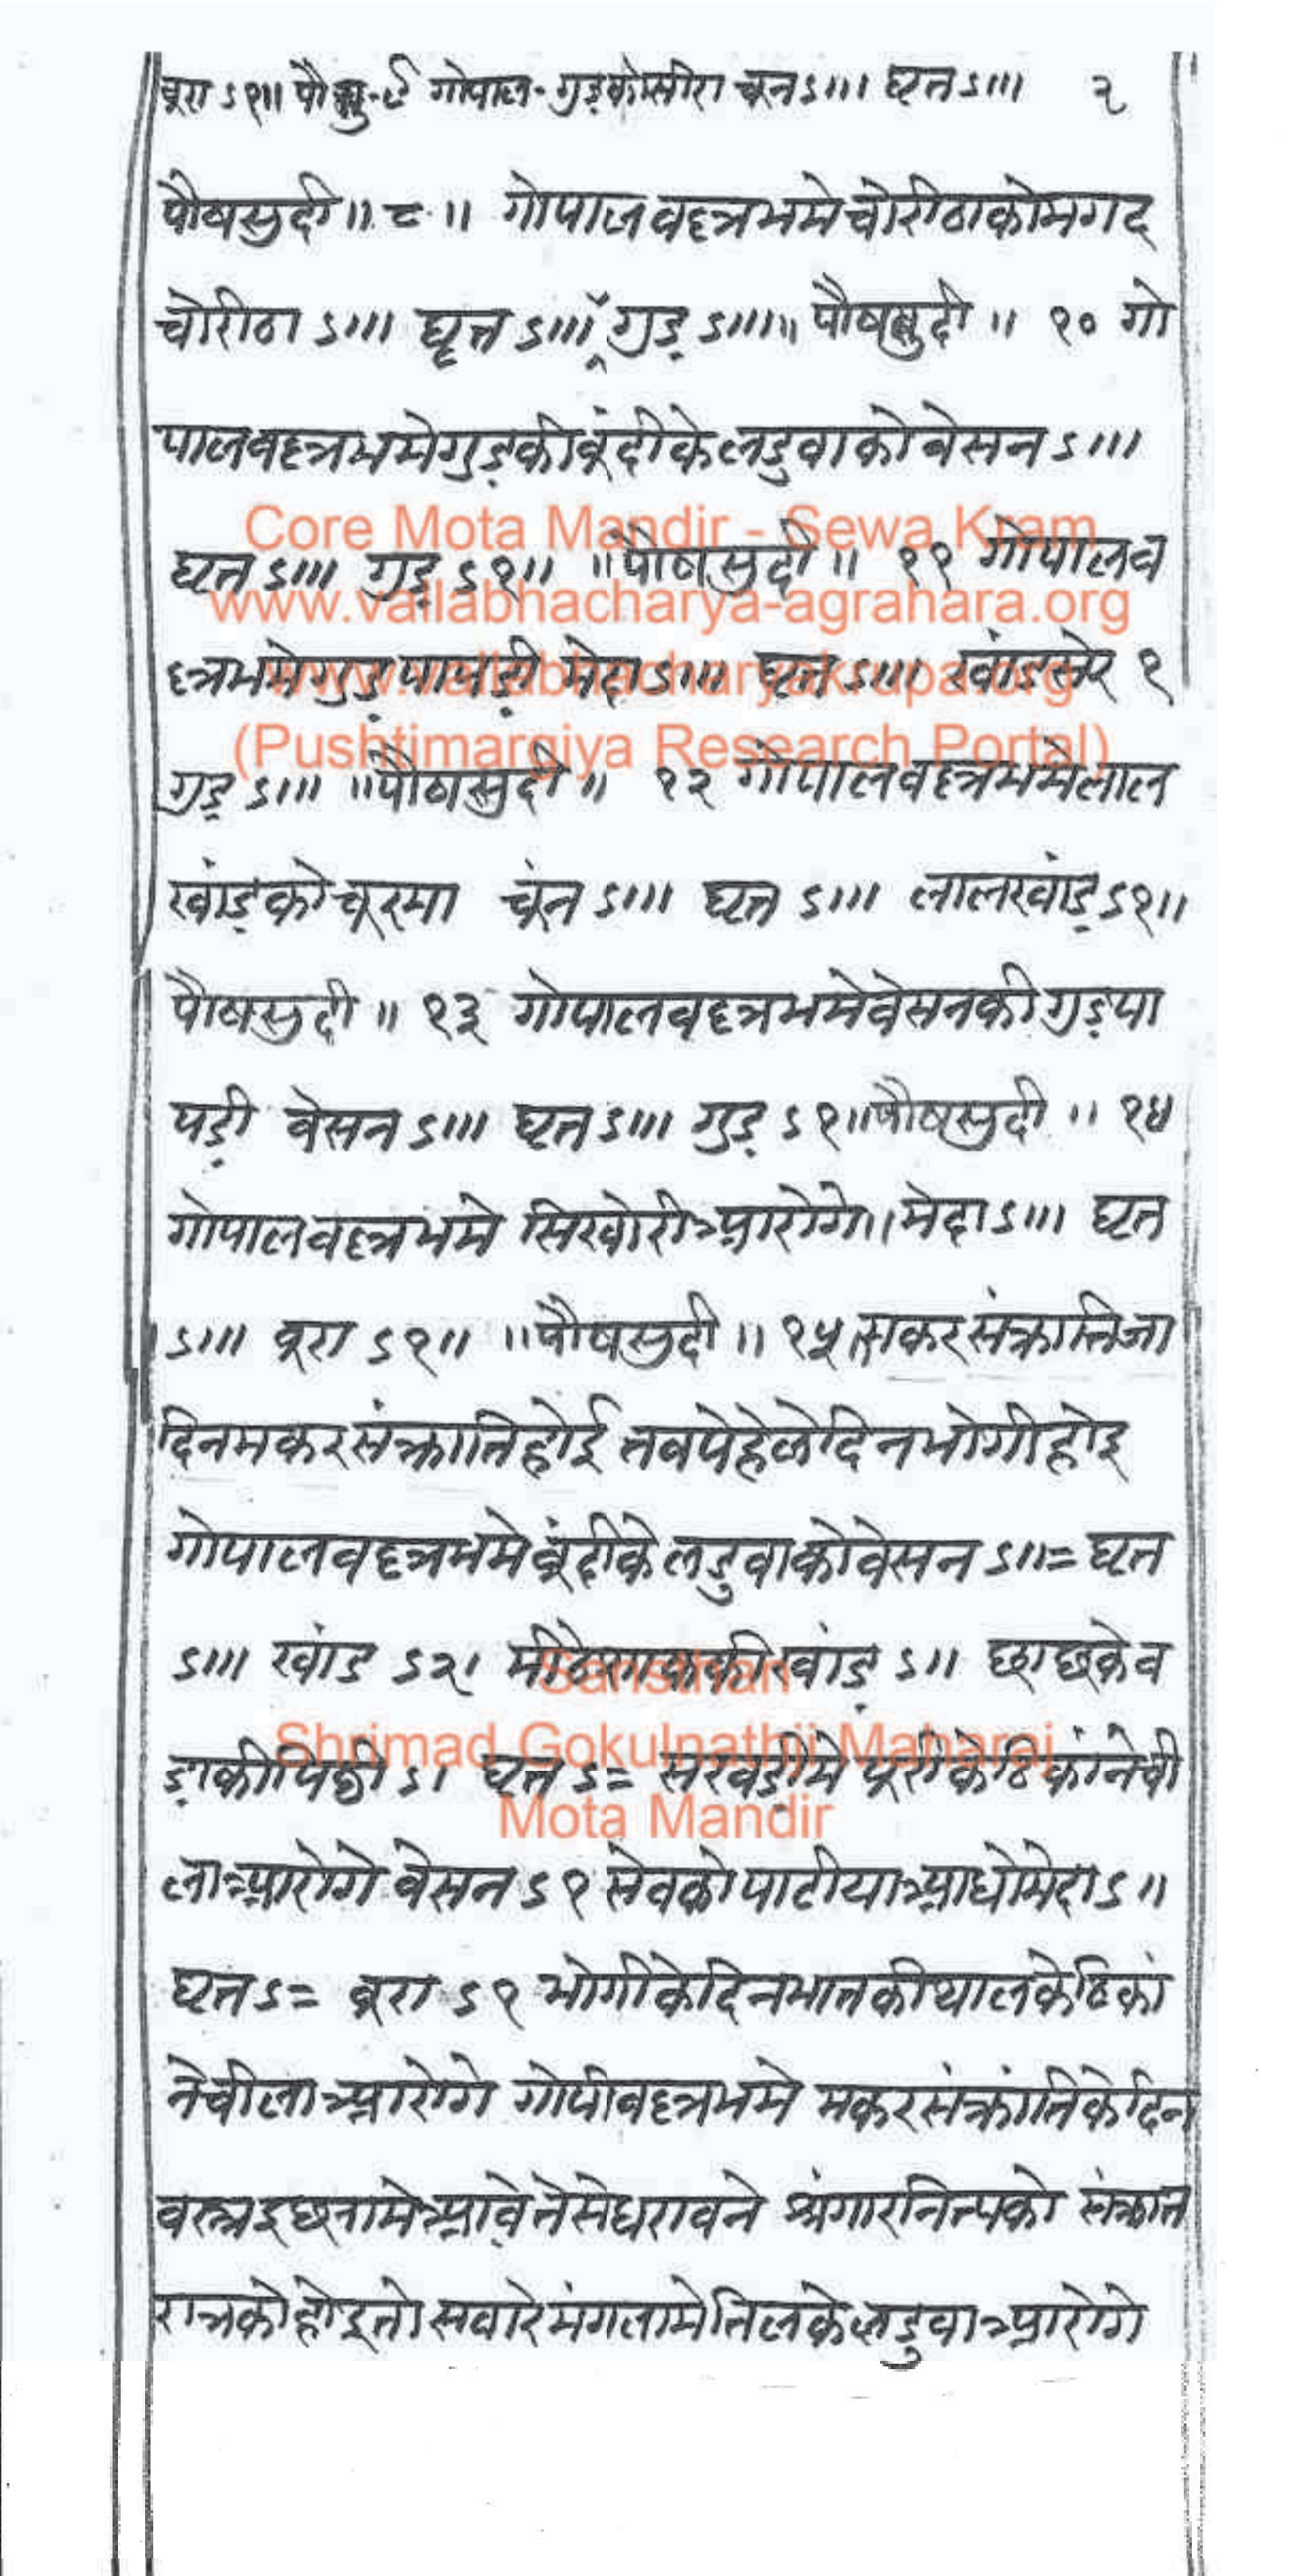 बूरा ऽ१॥ पौषसु-९ गोपाल-गुड़कोसीरा चून ऽ।।। घृत ऽ।।। २
पौषसुदी ॥ ८ ॥ गोपालवल्लभमे चोरीठाकोमगद
चोरीठा ऽ।।। घृत ऽ।।। गुड़ ऽ।।।॥ पौषसुदी ॥ १० गो
पालवल्लभमेगुड़कीबूंदीकेलडुवाको बेसन ऽ।।।
Core Mota Mandir - Sewa Kram
घृत ऽ।।। गुड़ ऽ१॥ ॥पौषसुदी॥ ११ गोपालव
www.vallabhacharya-agrahara.org
ल्लभमेगुड़पापड़ी मेदा ऽ।।। घृत ऽ।।। खांडसेर १
www.vallabhacharyakrupa.org
(Pushtimargiya Research Portal)
गुड़ ऽ।।। ॥पौषसुदी॥ १२ गोपालवल्लभमेलाल
खांड़कोचूरमा चूंन ऽ।।। घृत ऽ।।। लालखांड़ ऽ१॥
पौषसुदी ॥ १३ गोपालवल्लभमेवेसनकीगुड़पा
पड़ी वेसन ऽ।।। घृत ऽ।।। गुड़ ऽ१॥पौषसुदी ॥ १४
गोपालवल्लभमे सिखोरीआरोगे॥ मेदा ऽ।।। घृत
ऽ।।। बूरा ऽ१॥ ॥पौषसुदी॥ १५॥मकरसंक्रान्तिजा
दिनमकरसंक्रातिहोई तवपेहेलेदिनभोगीहोइ
गोपालवल्लभमेबूंदीकेलडुवाकोवेसन ऽ॥= घृत
ऽ।।। खांड ऽ२। खांड़ ऽ॥ छाछकेव
Sansthan
Shrimad Gokulnathji Maharaj
ड़ाकीपिठी ऽ। घृत ऽ= सखड़ीमे पूरीकेठिकांनेची
Mota Mandir
लाआरोगे वेसन ऽ१ सेवकोपाटीयाआधोमेदा ऽ॥
घृत ऽ= बूरा ऽ१ भोगीकेदिनभातकीथालकेठिकां
नेचीलाआरोगे गोपीवल्लभमे मकरसंक्रांतिकेदिन
वस्त्रइछामेआवेतेसेधरावने श्रंगारनित्यको संक्रात
रात्रकोहोइतो सवारेमंगलामेतिलकेलडुवाआरोगे